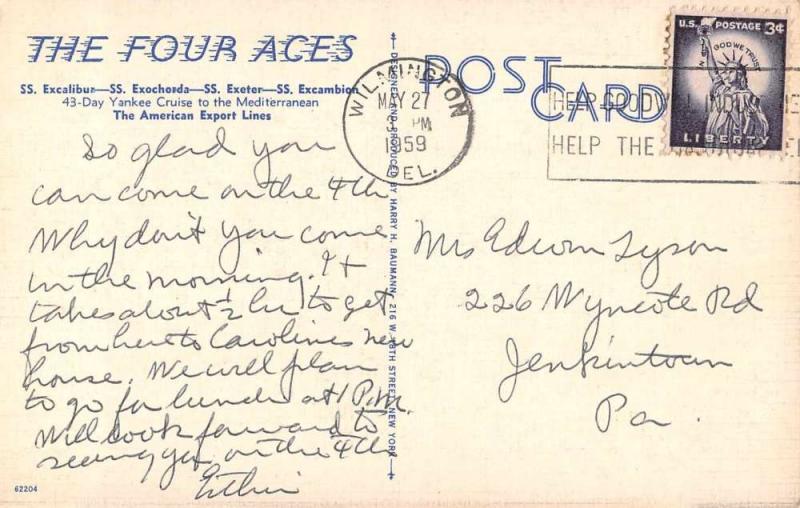 THE FOUR ACES
SS. Excalibur—SS. Exochorda—SS. Exeter—SS. Excambion
43-Day Yankee Cruise to the Mediterranean
The American Export Lines
So glad you
can come on the 4th
Why don't you come
in the morning. It
takes about ½ hr to get
from here to Carolines new
house. We will plan
to go for lunch at 1 P.M.
Will look forward to
seeing you on the 4th
62204
DESIGNED AND PRODUCED BY HARRY H. BAUMANN, 216 W. 18TH STREET, NEW YORK
POST
CARD
WILMINGTON
MAY 27
PM
1959
DEL.
HELP
HELP THE
U.S. POSTAGE 3¢
IN GOD WE TRUST
LIBERTY
Mrs Edwin Tyson
226 Wyncote Rd
Jenkintown
Pa.